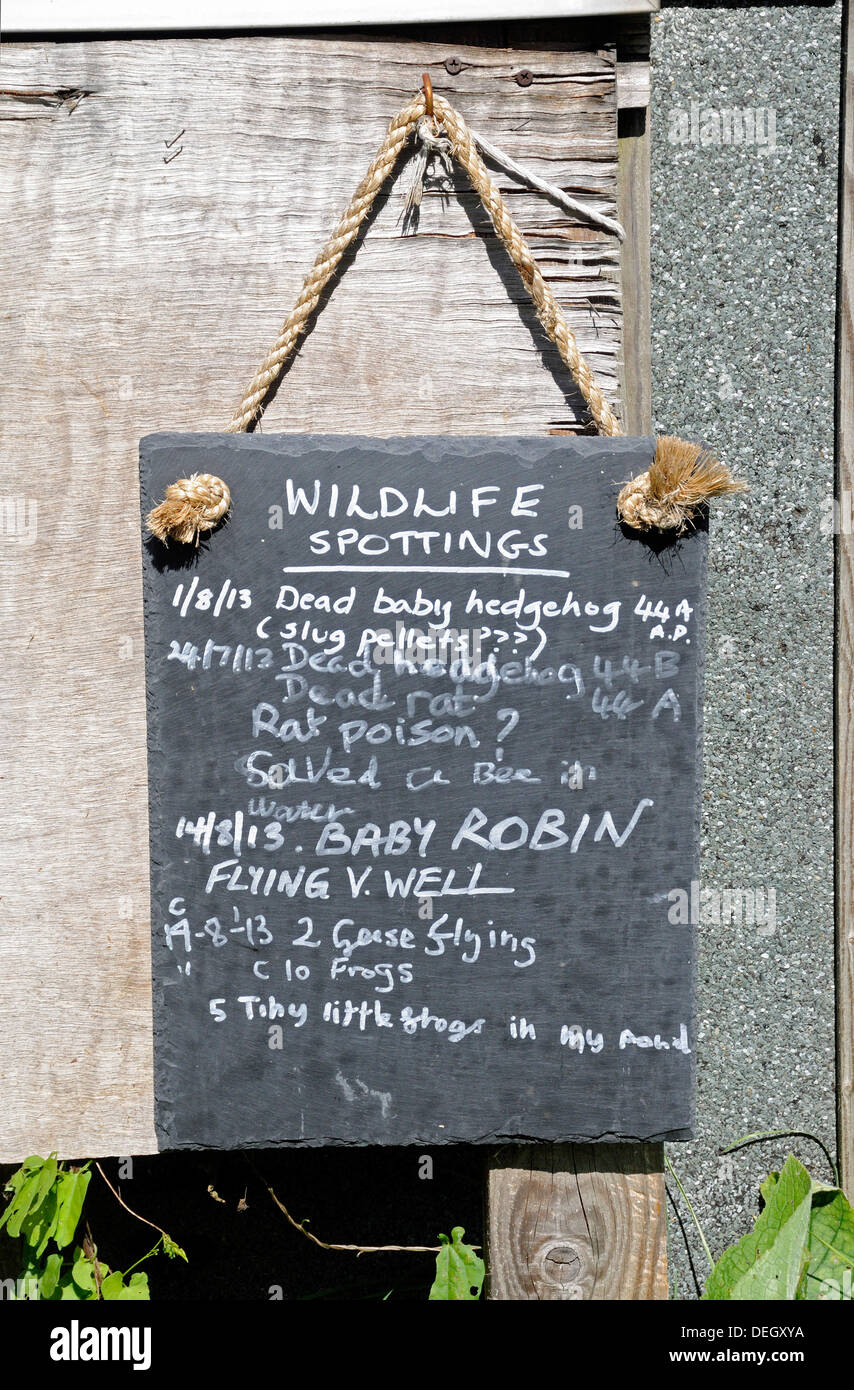 WILDLIFE
SPOTTINGS
1/8/13 Dead baby hedgehog 44A
(slug pellets???) A.P.
24/7/13 Dead hedgehog 44B
Dead rat 44A
Rat poison?
Saved a Bee in
water
14/8/13. BABY ROBIN
FLYING V. WELL
-8-13 2 Geese flying
" C 10 Frogs
5 Tiny little frogs in my pond
alamy
alamy
Image ID: DEGXYA
www.alamy.com